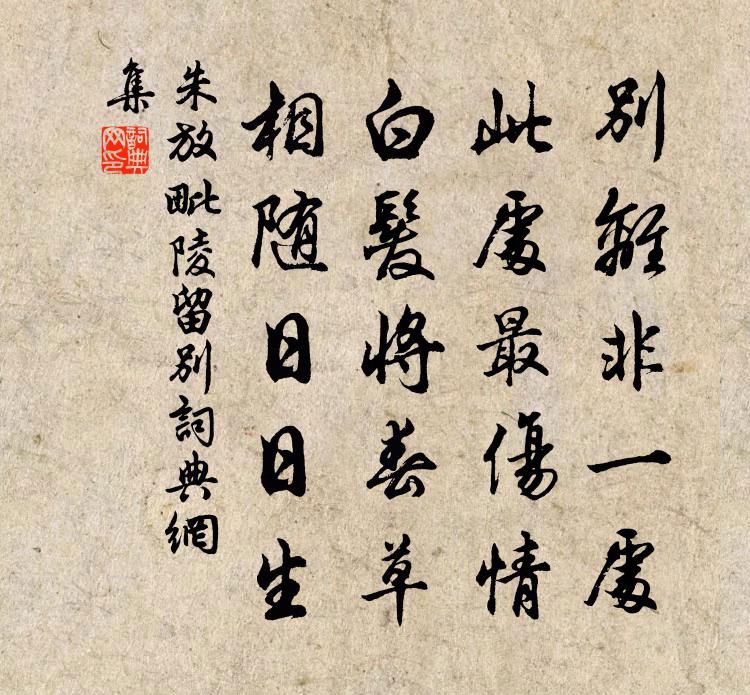 別離非一處
此處最傷情
白髮將春草
相随日日生
朱放毗陵留別詞典網
集
詞典
网印